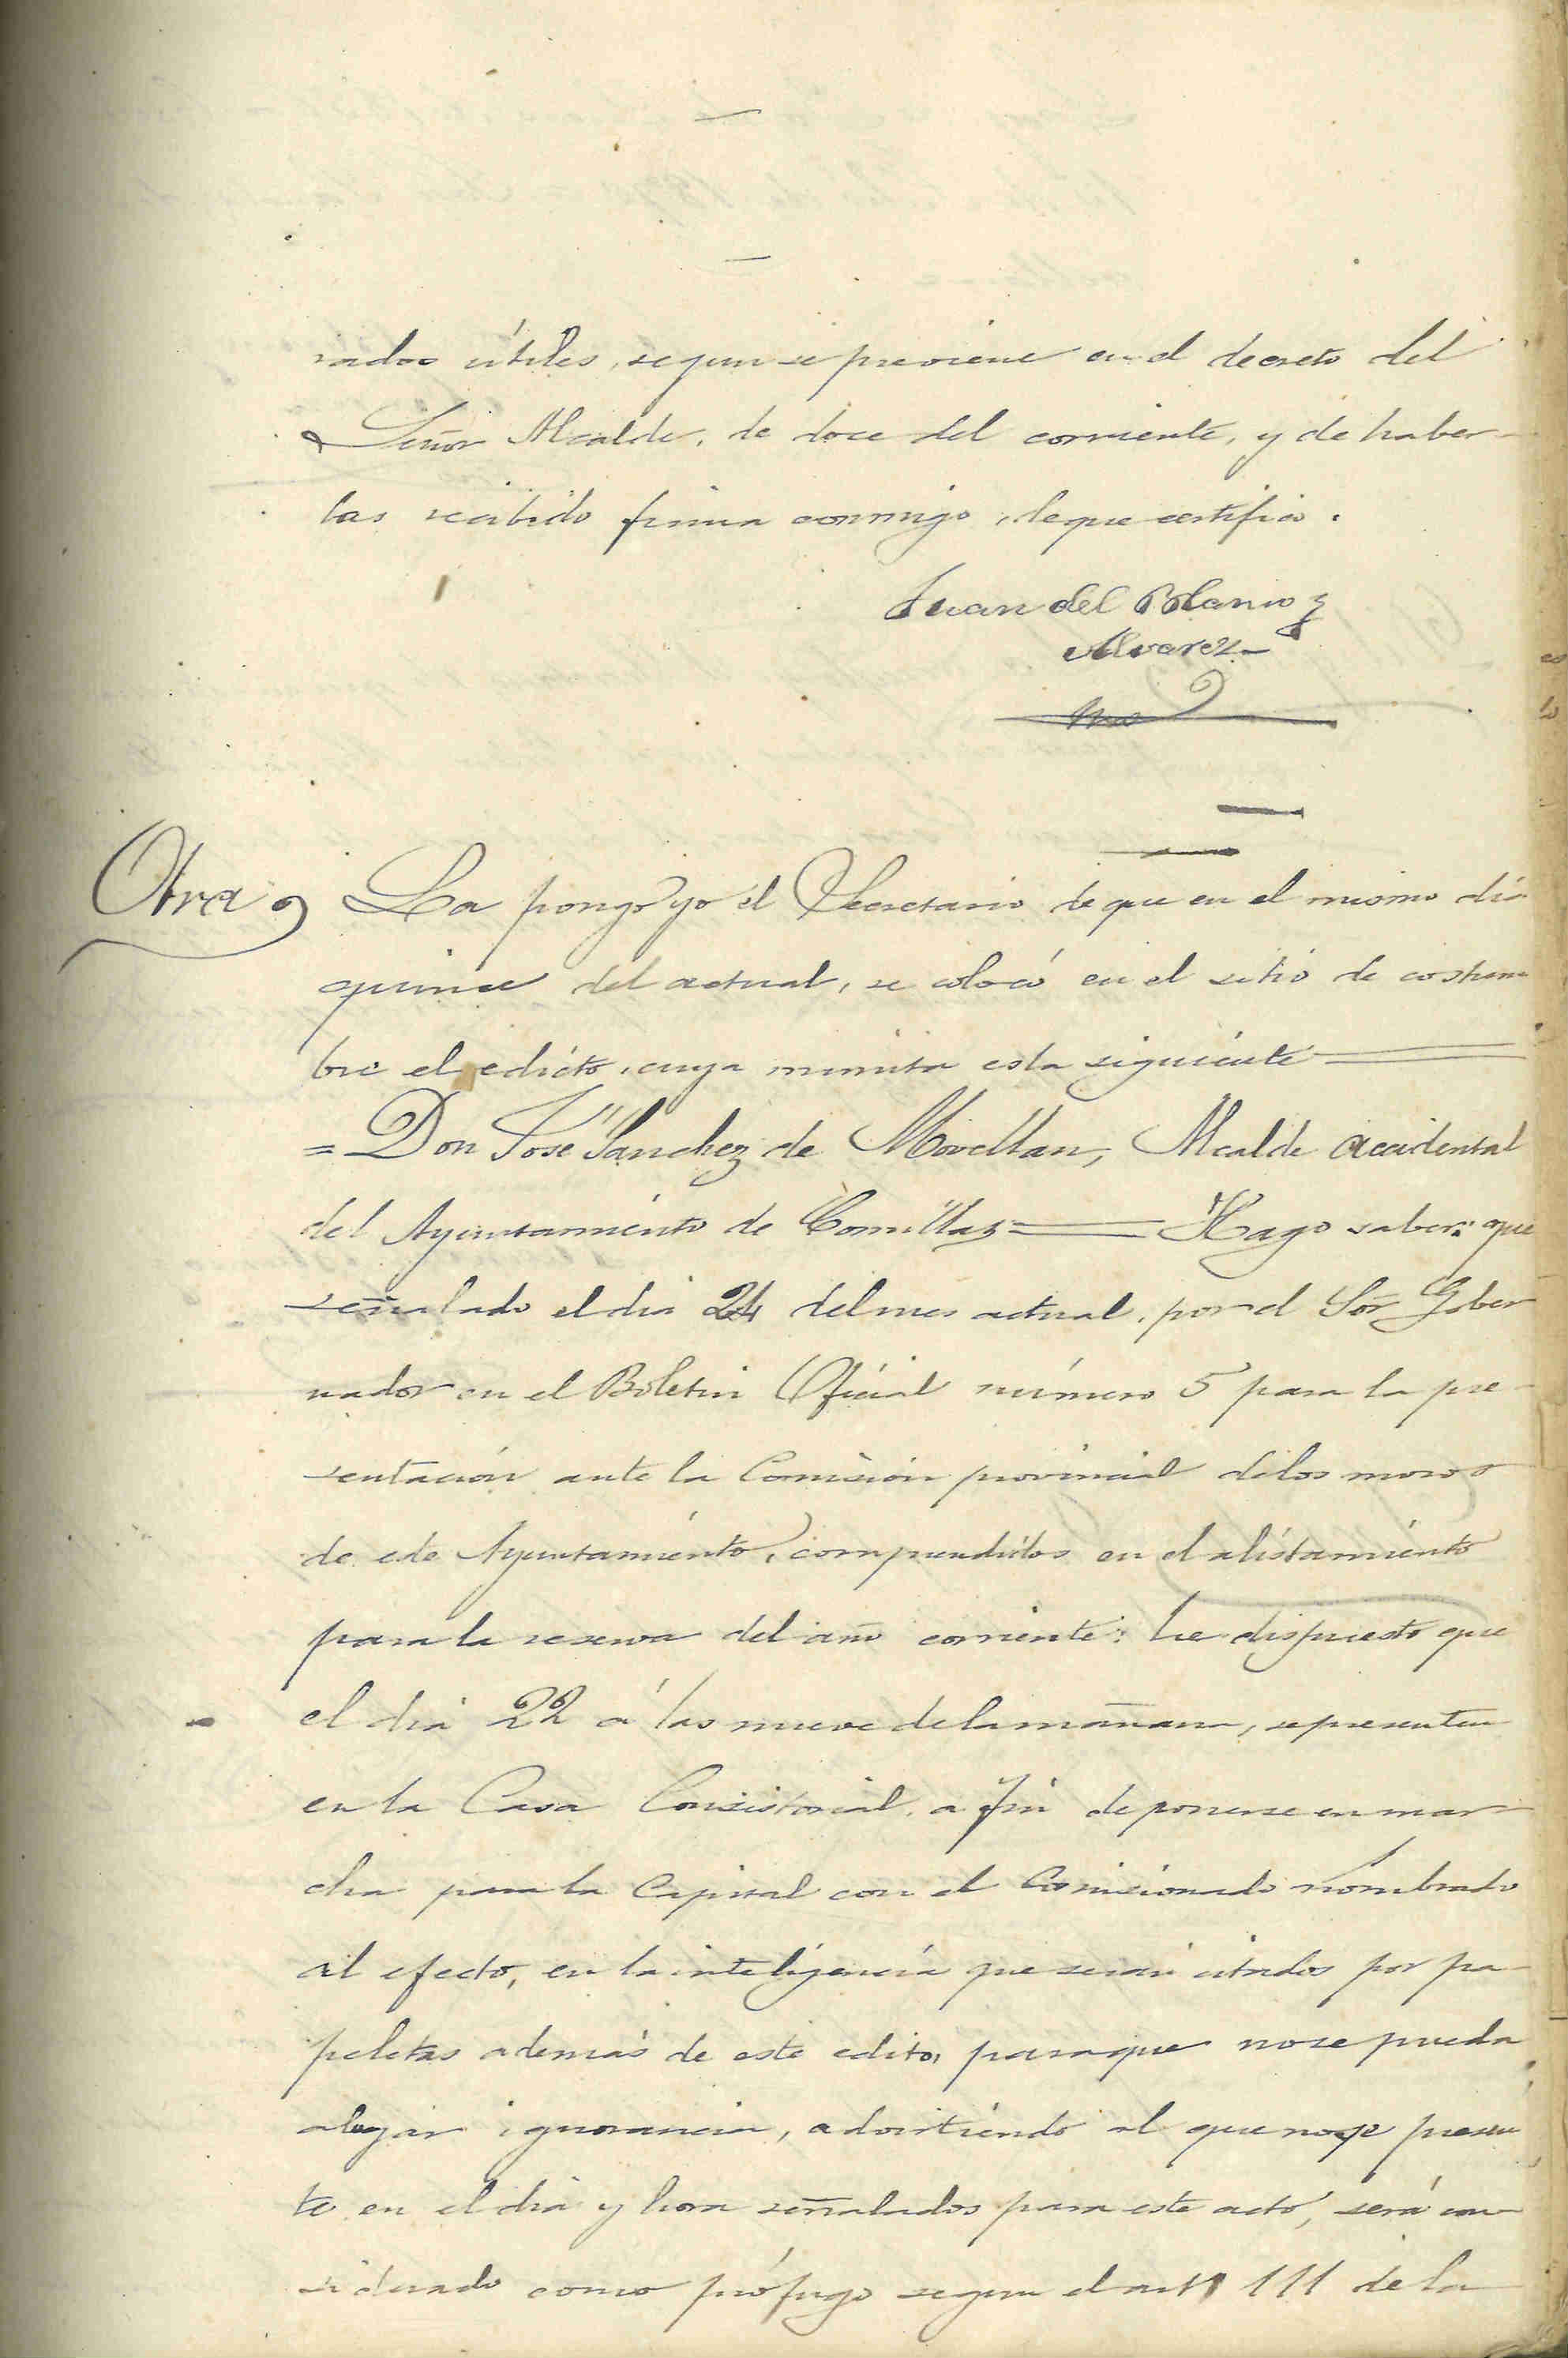 rados útiles, segun se previene en el decreto del
Señor Alcalde, de doce del corriente, y de haber-
las recibido firma conmigo, de que certifico.
Juan del Blanco y
Alvarez
Otra
La pongo yo el Secretario de que en el mismo dia
quince del actual, se colocó en el sitio de costum
bre el edicto, cuya minuta es la siguiente
= Don José Sanchez de Movellan, Alcalde accidental
del Ayuntamiento de Comillas = Hago saber: que
señalado el dia 24 del mes actual, por el Sör Gober
nador en el Boletin Oficial número 5 para la pre-
sentación ante la Comisión provincial de los mozos
de este Ayuntamiento, comprendidos en el alistamiento
para la reserva del año corriente: he dispuesto que
el dia 22 á las nueve de la mañana, se presenten
en la Casa Consistorial, a fin de ponerse en mar-
cha para la Capital con el Comisionado nombrado
al efecto, en la inteligencia que serán citados por pa-
peletas además de este edito, para que no se pueda
alegar ignorancia, advirtiendo al que no se presen
te en el dia y hora señalados para este acto, será con
siderado como prófugo segun el art 111 de la